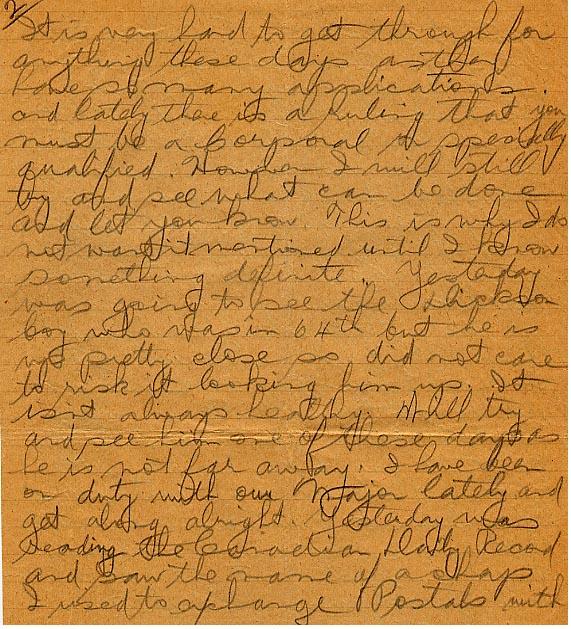 2/
It is very hard to get through for
anything these days as they
have so many applications.
and lately there is a ruling that you
must be a Corporal or specially
qualified. However I will still
try and see what can be done
and let you know. This is why I do
not want it mentioned until I know
something definite. Yesterday
was going to see the Dickson
boy who was in 64th but he is
up pretty close so did not care
to risk it looking him up. It
isnt always healthy. Will try
and see him one of these days as
he is not far away. I have been
on duty with our Major lately and
get along alright. Yesterday was
reading the Canadian Daily Record
and saw the name of a chap
I used to exchange Postals with